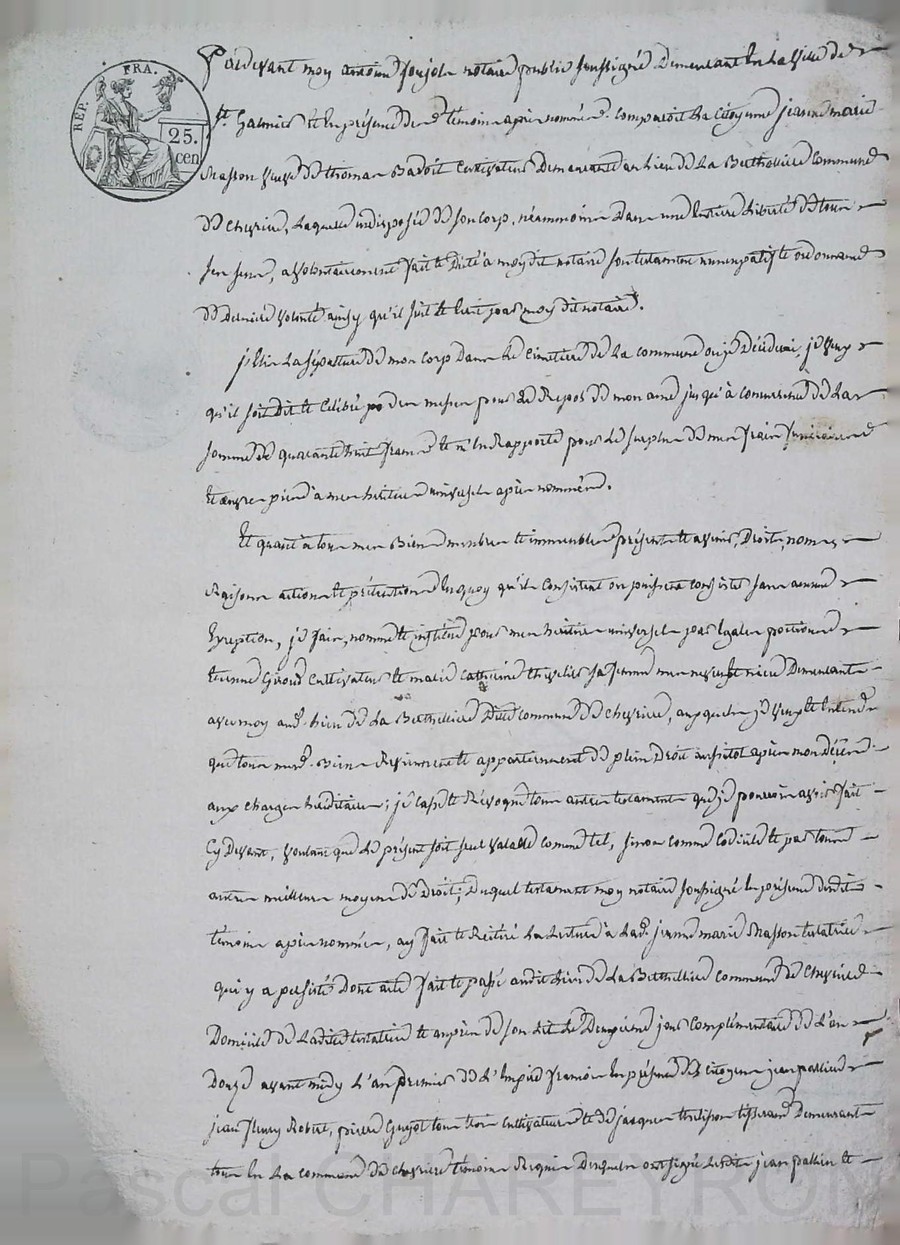 REP. FRA.
25.
cen
Pardevant moy antoine notaire public soussigné Demeurant En La Ville de
St. Galmier Et En présence de témoins après nommés. Comparoit La Citoyenne jeanne marie
Masson veuve de thomas Badoil Cultivateur Demeurante au Lieu de La Berthelliere Commune
de Chevriere, Laquelle indisposée de son Corp, néammoins Dans une Entiere Liberté de tous
ses sens, a volontairement fait et Dicté à moy dit notaire son testament nuncupatif et ordonnance
de Derniere volonté ainsy qu'il suit et Ecrit par moy dit notaire.
j'Elis La sépulture de mon Corp Dans Le Cimetiere de La commune ou je Décéderai, je veux
qu'il soit Dit et Célébré des messes pour Le Repos de mon ame jusqu'à concurrence de La
somme de quarante huit francs et m'En Rapporte pour Le surplus de mes frais funeraires
Et œuvres pies à mes héritiers universels après nommés.
Et quant à tous mes Biens meubles et immeubles présents et avenir, Droits, noms,
Raisons actions et prétentions En quoy qu'ils Consistent ou puissent consister sans aucune
Exception, je fais, nomme et institue pour mes héritiers universels par Egales portions
Etienne Giroud Cultivateur et marie Catherine sa femme mes neveu et niece Demeurants
avec moy aud. Lieu de La Berthelliere Dite Commune de Chevriere, auxquels je veux et Entends
que tous mesd. Biens Reviennent et appartiennent de plein Droit aussitot après mon Décès
aux charges héréditaires; je Casse et Révoque tous autres testaments que je pourrois avoir fait
Cy Devant, voulant que Le présent soit seul valable comme tel, sinon comme Codicile et par tous
autres meilleurs moyens de Droit; Duquel testament moy notaire soussigné En présence desdits
témoins après nommés, ay fait et Réitéré La Lecture à Lad. jeanne marie Masson testatrice
qui y a persisté Dont acte fait et passé audit Lieu de La Berthelliere Commune de Chevriere
Domicile de Ladite testatrice et auprès de son Lit Le Deuxieme jour Complémentaire de L'an
Douze avant midy L'an premier de L'Empire français En présence des Citoyens jean
jean fleury Robert, pierre Guyot tous trois Cultivateurs et de jacques tisserand Demeurant
tous En La commune de Chevriere témoins Requis Desquels ont signé Ledit jean et
Pascal CHAREYRON